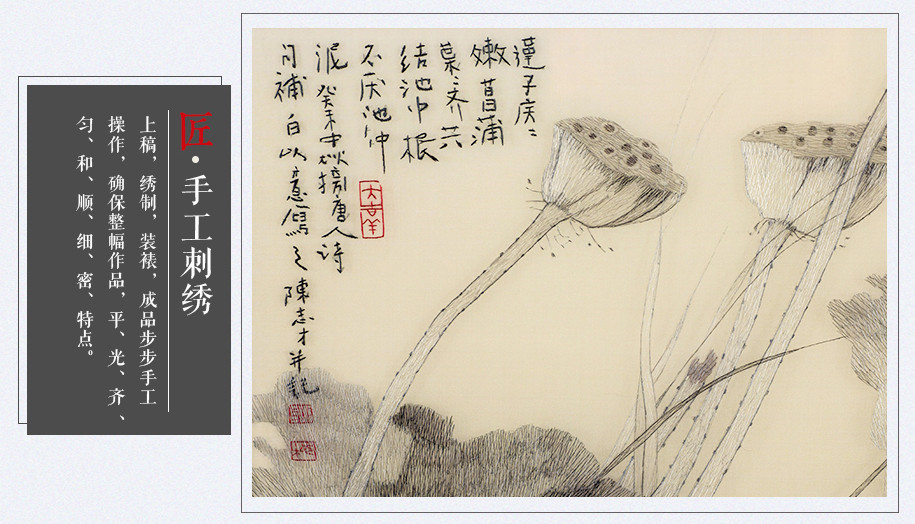 匠·手工刺绣
上稿，绣制，装裱，成品步步手工
操作，确保整幅作品，平、光、齐、
匀、和、顺、细、密、特点。
蓮子房〻
嫩菖蒲
葉〻齐共
结池中根
不厌池中
泥 癸未中秋摘唐人诗
句補白以意寫之 陳志才并
大吉羊